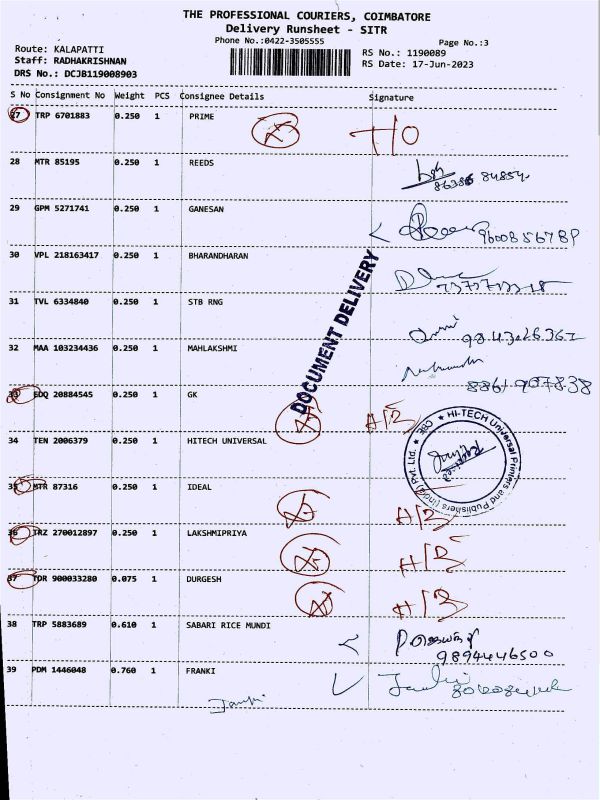 THE PROFESSIONAL COURIERS, COIMBATORE
Delivery Runsheet - SITR
Phone No.:0422-3505555
Page No.:3
Route: KALAPATTI
Staff: RADHAKRISHNAN
DRS No.: DCJB119008903
RS No.: 1190089
RS Date: 17-Jun-2023
S No Consignment No Weight PCS Consignee Details Signature
27 TRP 6701883 0.250 1 PRIME
28 MTR 85195 0.250 1 REEDS
29 GPM 5271741 0.250 1 GANESAN
30 VPL 218163417 0.250 1 BHARANDHARAN
DOCUMENT DELIVERY
31 TVL 6334840 0.250 1 STB RNG
32 MAA 103234436 0.250 1 MAHLAKSHMI
33 EDQ 20884545 0.250 1 GK
34 TEN 2006379 0.250 1 HITECH UNIVERSAL
HI-TECH Universal Printers and Publishers (India) Pvt. Ltd. ★ CBE ★
35 MTR 87316 0.250 1 IDEAL
36 TRZ 270012897 0.250 1 LAKSHMIPRIYA
37 TDR 900033280 0.075 1 DURGESH
38 TRP 5883689 0.610 1 SABARI RICE MUNDI
9894446500
39 PDM 1446048 0.760 1 FRANKI